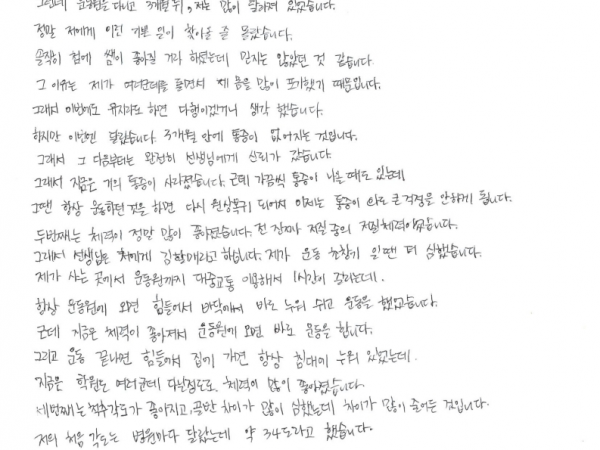 그런데 운동원을 다니고 3개월 뒤, 저는 많이 달라져 있었습니다.
정말 저에게 이런 기쁜 일이 찾아올 줄 몰랐습니다.
솔직히 첨에 쌤이 좋아질 거라 하셨는데 믿지는 않았던 것 같습니다.
그 이유는 제가 여러군데를 돌면서 제 몸을 많이 포기했기 때문입니다.
그래서 이번에도 유지라도 하면 다행이겠거니 생각 했습니다.
하지만 이번엔 달랐습니다. 3개월 만에 통증이 없어지는 것입니다.
그래서 그 다음부터는 완전히 선생님에게 신뢰가 갔습니다.
그래서 지금은 거의 통증이 사라졌습니다. 근데 가끔씩 통증이 나올 때도 있는데
그땐 항상 운동하던 것을 하면 다시 원상복귀 되어서 이제는 통증이 와도 큰 걱정을 안하게 됩니다.
두번째는 체력이 정말 많이 좋아졌습니다. 전 진짜 저질 중의 저질체력이었습니다.
그래서 선생님은 저에게 김할매라고 하십니다. 제가 운동 초창기 일땐 더 심했습니다.
제가 사는 곳에서 운동원까지 대중교통 이용해서 1시간이 걸리는데.
항상 운동원에 오면 힘들어서 바닥에서 바로 누워 쉬고 운동을 했었습니다.
근데 지금은 체력이 좋아져서 운동원에 오면 바로 운동을 합니다.
그리고 운동 끝나면 힘들어서 집에 가면 항상 침대에 누워 있었는데.
지금은 학원도 여러군데 다닐정도로 체력이 많이 좋아졌습니다.
세번째는 척추각도가 좋아지고, 골반 차이가 많이 심했는데 차이가 많이 줄어든 것입니다.
저의 처음 각도는 병원마다 달랐는데 약 34도라고 했습니다.